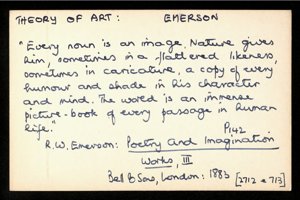 THEORY OF ART: EMERSON
"Every noun is an image. Nature gives
him, sometimes in a flattered likeness,
sometimes in caricature, a copy of every
humour and shade in his character
and mind. The world is an immense
picture-book of every passage in human
life."
P142
R.W. Emerson: Poetry and Imagination
Works, III
Bell & Sons, London: 1883
[2712 & 713]